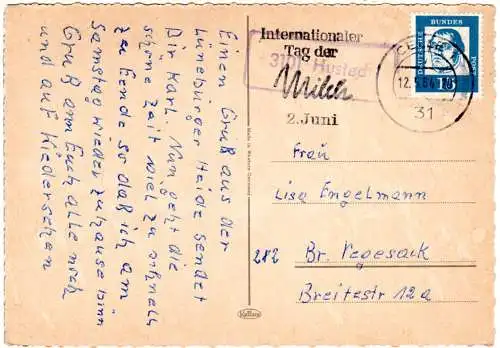 Einen Gruß aus der
Lüneburger Heide sendet
Dir Karl. Nun geht die
schöne Zeit viel zu schnell
zu Ende so daß ich am
Samstag wieder zuhause bin
Gruß am Euch alle noch
und auf Wiedersehen
Internationaler
Tag der
Milch
2. Juni
3101 Husted
BUNDES
CELLE
31
Frau
Lisa Engelmann
282 Br. Vegesack
Breitestr 12a